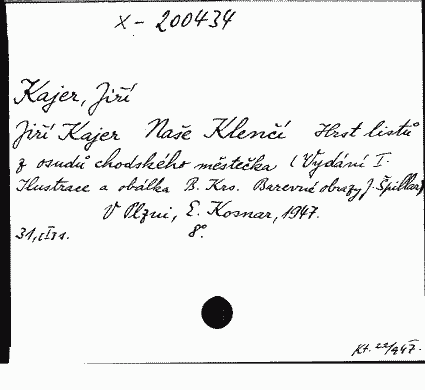 X - 200434
Kajer, Jiří
Jiří Kajer Naše Klenčí Hrst listů
z osudů chodského městečka (Vydání I.
Ilustrace a obálka B. Krs. Barevné obrazy J. Špillar)
V Plzni, E. Kosnar, 1947.
31, 8°
Kt.